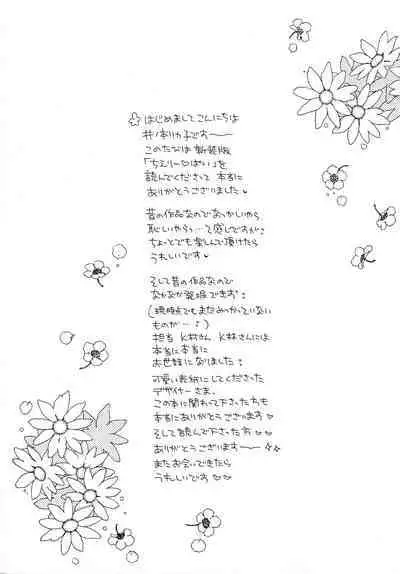 はじめましてこんにちは
井ノ本リカ子です——
このたびは新装版
「ちぇりー♡ぱい」を
読んでくださって本当に
ありがとうございました♥
昔の作品なのであつかしいやら
恥しいやらっ…て感じですが
ちょっとでも楽しんで頂けたら
うれしいです♥
そして昔の作品なので
なかなか発掘できず
(現時点でもまだみつかっていない
ものが…)
担当 K村さん K林さんには
本当に本当に
お世話になりました
可愛い表紙にしてくださった
デザイナーさま、
この本に関わって下さった方も
本当にありがとうございます♡
そして読んで下さった方♡♡
ありがとうございます——☆☆
またお会いできたら
うれしいです♡♡